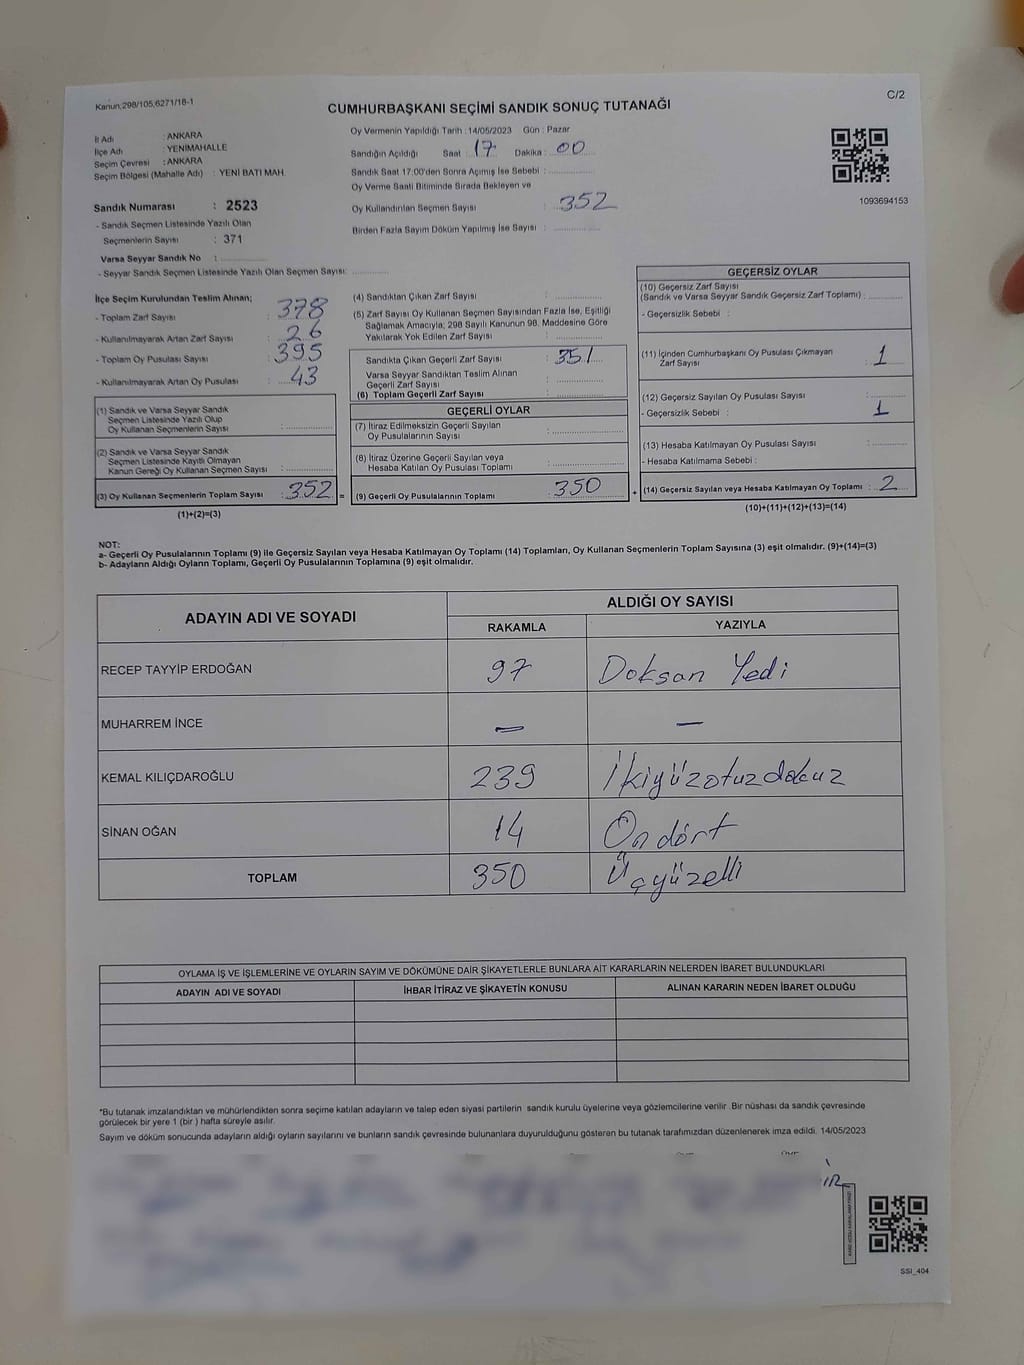 Kanun;298/105,6271/18-1
C/2
CUMHURBAŞKANI SEÇİMİ SANDIK SONUÇ TUTANAĞI
İl Adı : ANKARA
İlçe Adı : YENİMAHALLE
Seçim Çevresi : ANKARA
Seçim Bölgesi (Mahalle Adı) : YENİ BATI MAH.
Sandık Numarası : 2523
- Sandık Seçmen Listesinde Yazılı Olan
Seçmenlerin Sayısı : 371
Varsa Seyyar Sandık No :
- Seyyar Sandık Seçmen Listesinde Yazılı Olan Seçmen Sayısı:
Oy Vermenin Yapıldığı Tarih : 14/05/2023 Gün : Pazar
Sandığın Açıldığı Saat : 17 Dakika : 00
Sandık Saat 17:00'den Sonra Açımış İse Sebebi :
Oy Verme Saati Bitiminde Sırada Bekleyen ve
Oy Kullandırılan Seçmen Sayısı : 352
Birden Fazla Sayım Döküm Yapılmış İse Sayısı :
1093694153
İlçe Seçim Kurulundan Teslim Alınan;
- Toplam Zarf Sayısı : 378
- Kullanılmayarak Artan Zarf Sayısı : 26
- Toplam Oy Pusulası Sayısı : 395
- Kullanılmayarak Artan Oy Pusulası : 43
(1) Sandık ve Varsa Seyyar Sandık
Seçmen Listesinde Yazılı Olup
Oy Kullanan Seçmenlerin Sayısı :
(2) Sandık ve Varsa Seyyar Sandık
Seçmen Listesinde Kayıtlı Olmayan
Kanun Gereği Oy Kullanan Seçmen Sayısı :
(3) Oy Kullanan Seçmenlerin Toplam Sayısı : 352 =
(1)+(2)=(3)
(4) Sandıktan Çıkan Zarf Sayısı :
(5) Zarf Sayısı Oy Kullanan Seçmen Sayısından Fazla İse, Eşitliği
Sağlamak Amacıyla; 298 Sayılı Kanunun 98. Maddesine Göre
Yakılarak Yok Edilen Zarf Sayısı :
Sandıkta Çıkan Geçerli Zarf Sayısı : 351
Varsa Seyyar Sandıktan Teslim Alınan
Geçerli Zarf Sayısı :
(6) Toplam Geçerli Zarf Sayısı :
GEÇERLİ OYLAR
(7) İtiraz Edilmeksizin Geçerli Sayılan
Oy Pusulalarının Sayısı :
(8) İtiraz Üzerine Geçerli Sayılan veya
Hesaba Katılan Oy Pusulası Toplamı :
(9) Geçerli Oy Pusulalarının Toplamı : 350 +
GEÇERSİZ OYLAR
(10) Geçersiz Zarf Sayısı
(Sandık ve Varsa Seyyar Sandık Geçersiz Zarf Toplamı) :
- Geçersizlik Sebebi :
(11) İçinden Cumhurbaşkanı Oy Pusulası Çıkmayan
Zarf Sayısı : 1
(12) Geçersiz Sayılan Oy Pusulası Sayısı :
- Geçersizlik Sebebi : 1
(13) Hesaba Katılmayan Oy Pusulası Sayısı :
- Hesaba Katılmama Sebebi :
(14) Geçersiz Sayılan veya Hesaba Katılmayan Oy Toplamı : 2
(10)+(11)+(12)+(13)=(14)
NOT:
a- Geçerli Oy Pusulalarının Toplamı (9) ile Geçersiz Sayılan veya Hesaba Katılmayan Oy Toplamı (14) Toplamları, Oy Kullanan Seçmenlerin Toplam Sayısına (3) eşit olmalıdır. (9)+(14)=(3)
b- Adayların Aldığı Oyların Toplamı, Geçerli Oy Pusulalarının Toplamına (9) eşit olmalıdır.
ADAYIN ADI VE SOYADI
ALDIĞI OY SAYISI
RAKAMLA YAZIYLA
RECEP TAYYİP ERDOĞAN 97 Doksan Yedi
MUHARREM İNCE — —
KEMAL KILIÇDAROĞLU 239 İkiyüzotuzdokuz
SİNAN OĞAN 14 On dört
TOPLAM 350 Üçyüzelli
OYLAMA İŞ VE İŞLEMLERİNE VE OYLARIN SAYIM VE DÖKÜMÜNE DAİR ŞİKAYETLERLE BUNLARA AİT KARARLARIN NELERDEN İBARET BULUNDUKLARI
ADAYIN ADI VE SOYADI İHBAR İTİRAZ VE ŞİKAYETİN KONUSU ALINAN KARARIN NEDEN İBARET OLDUĞU
*Bu tutanak imzalandıktan ve mühürlendikten sonra seçime katılan adayların ve talep eden siyasi partilerin sandık kurulu üyelerine veya gözlemcilerine verilir .Bir nüshası da sandık çevresinde
görülecek bir yere 1 (bir ) hafta süreyle asılır.
Sayım ve döküm sonucunda adayların aldığı oyların sayılarını ve bunların sandık çevresinde bulunanlara duyurulduğunu gösteren bu tutanak tarafımızdan düzenlenerek imza edildi. 14/05/2023
SSI_404